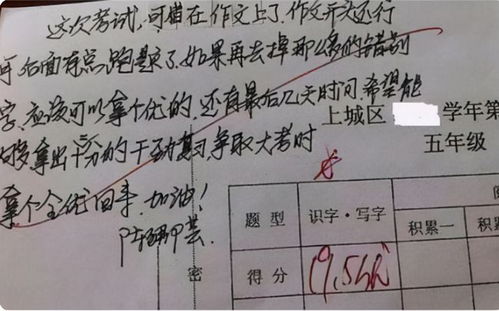 这次考试,可惜在作文上了.作文开头还行
可后面有点跑题了.如果再去掉那么多的错别
字,应该可以拿个优的.还有最后几天时间,希望能
够拿出十分的干劲复习争取大考时
拿个全优回来.加油!
上城区 学年第
五年级
题型 识字·写字
积累一 积累
密 得分 19.5